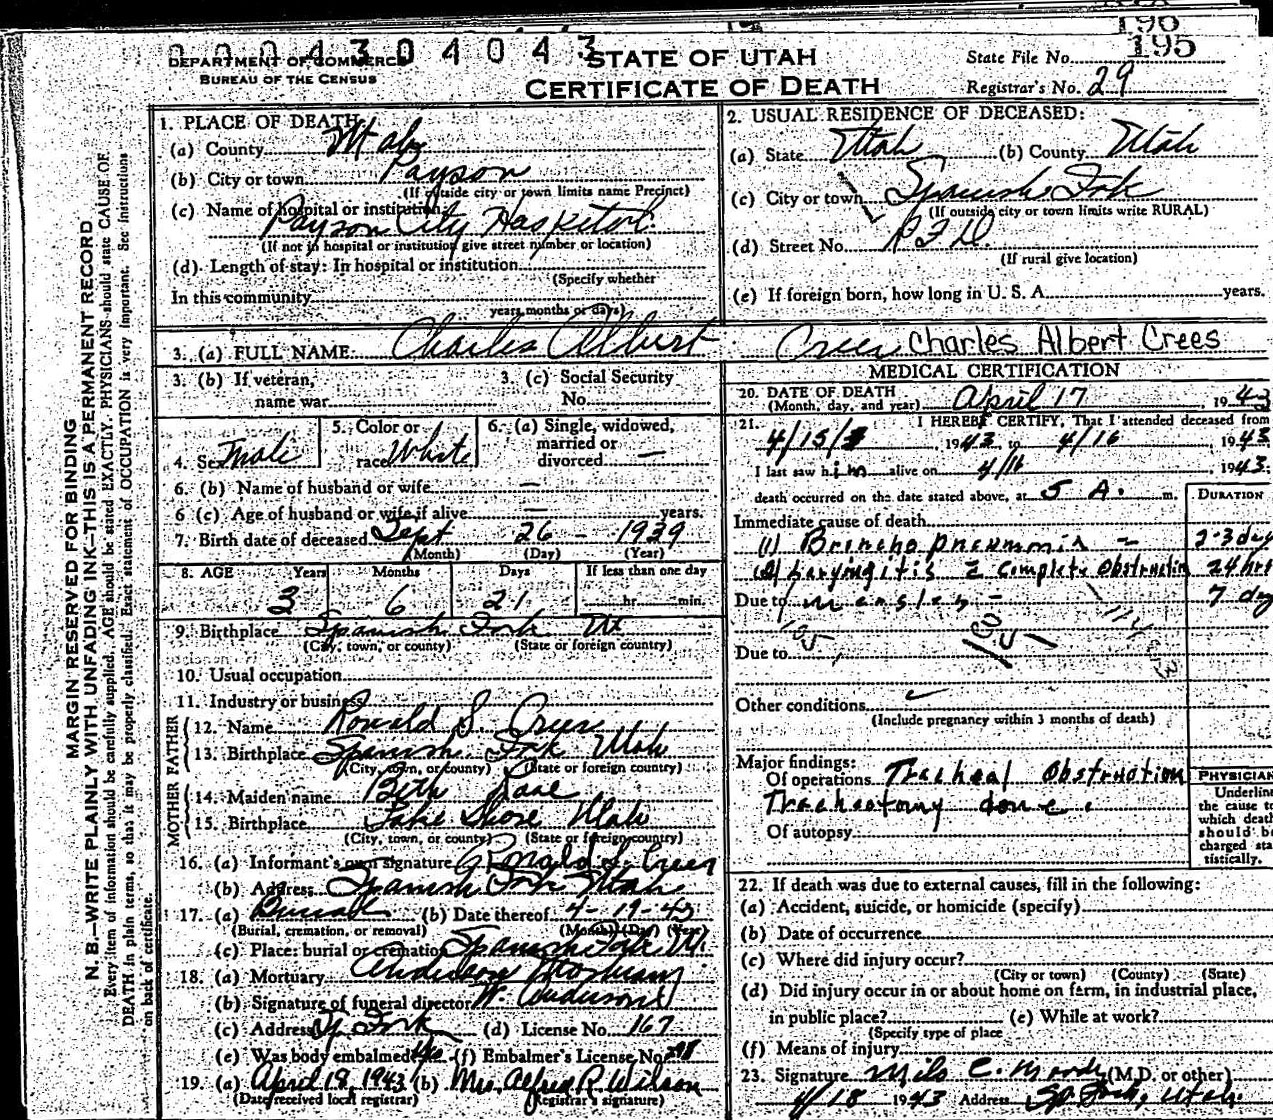 0004304043
DEPARTMENT OF COMMERCE
BUREAU OF THE CENSUS
STATE OF UTAH
CERTIFICATE OF DEATH
196
195
State File No.
Registrar's No. 29
MARGIN RESERVED FOR BINDING
N. B.—WRITE PLAINLY WITH UNFADING INK—THIS IS A PERMANENT RECORD
Every item of information should be carefully supplied. AGE should be stated EXACTLY. PHYSICIANS should state CAUSE OF
DEATH in plain terms, so that it may be properly classified. Exact statement of OCCUPATION is very important. See instructions
on back of certificate.
1. PLACE OF DEATH:
(a) County Utah
(b) City or town Payson
(If outside city or town limits name Precinct)
(c) Name of hospital or institution:
Payson City Hospital.
(If not in hospital or institution give street number or location)
(d) Length of stay: In hospital or institution
(Specify whether
In this community
years, months or days)
2. USUAL RESIDENCE OF DECEASED:
(a) State Utah (b) County Utah
(c) City or town Spanish Fork
(If outside city or town limits write RURAL)
(d) Street No. R.F.D.
(If rural give location)
(e) If foreign born, how long in U. S. A. years.
3. (a) FULL NAME Charles Albert Creer Charles Albert Crees
3. (b) If veteran,
name war
3. (c) Social Security
No.
4. Sex Male
5. Color or
race White
6. (a) Single, widowed,
married or
divorced —
6. (b) Name of husband or wife —
6 (c) Age of husband or wife if alive — years.
7. Birth date of deceased Sept 26 - 1939
(Month) (Day) (Year)
8. AGE Years Months Days If less than one day
3 6 21 hr. min.
9. Birthplace Spanish Fork Ut
(City, town, or county) (State or foreign country)
10. Usual occupation
11. Industry or business
FATHER
12. Name Ronald S. Creer
13. Birthplace Spanish Fork Utah
(City, town, or county) (State or foreign country)
MOTHER
14. Maiden name Beth Lane
15. Birthplace Lake Shore Utah
(City, town, or county) (State or foreign country)
16. (a) Informant's own signature Ronald S. Creer
(b) Address Spanish Fork Utah
17. (a) Burial (b) Date thereof 4-19-43
(Burial, cremation, or removal) (Month) (Day) (Year)
(c) Place: burial or cremation Spanish Fork Ut.
18. (a) Mortuary Anderson Mortuary
(b) Signature of funeral director W. Anderson
(c) Address Sp Fork (d) License No. 167
(e) Was body embalmed Yes (f) Embalmer's License No.
19. (a) April 19, 1943 (b) Mrs. Alfred R. Wilson
(Date received local registrar) (Registrar's signature)
MEDICAL CERTIFICATION
20. DATE OF DEATH
(Month, day, and year) April 17, 1943
21. I HEREBY CERTIFY, That I attended deceased from
4/15/ 1943 to 4/16 1943
I last saw him alive on 4/16 1943.
death occurred on the date stated above, at 5 A. m.
DURATION
Immediate cause of death
(1) Broncho pneumonia — 2-3 day
(2) Laryngitis c̄ Complete Obstruction 24 hrs
Due to measles - 7 day
Due to
Other conditions
(Include pregnancy within 3 months of death)
Major findings:
Of operations Tracheal Obstruction
Tracheotomy done.
Of autopsy
PHYSICIAN
Underline
the cause to
which death
should be
charged sta-
tistically.
22. If death was due to external causes, fill in the following:
(a) Accident, suicide, or homicide (specify)
(b) Date of occurrence
(c) Where did injury occur?
(City or town) (County) (State)
(d) Did injury occur in or about home on farm, in industrial place,
in public place? (e) While at work?
(Specify type of place
(f) Means of injury
23. Signature Mils C. Moody (M.D. or other)
4/18 1943 Address Sp. Fork, Utah.